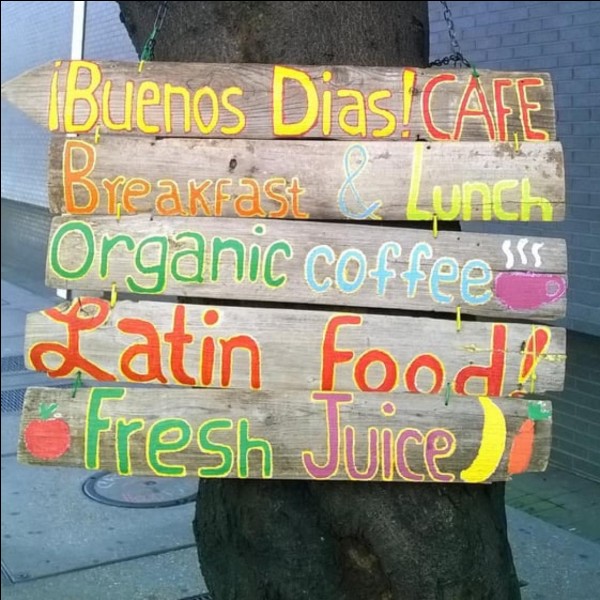 ¡Buenos Dias! CAFE
Breakfast & Lunch
Organic coffee
Latin Food!
Fresh Juice